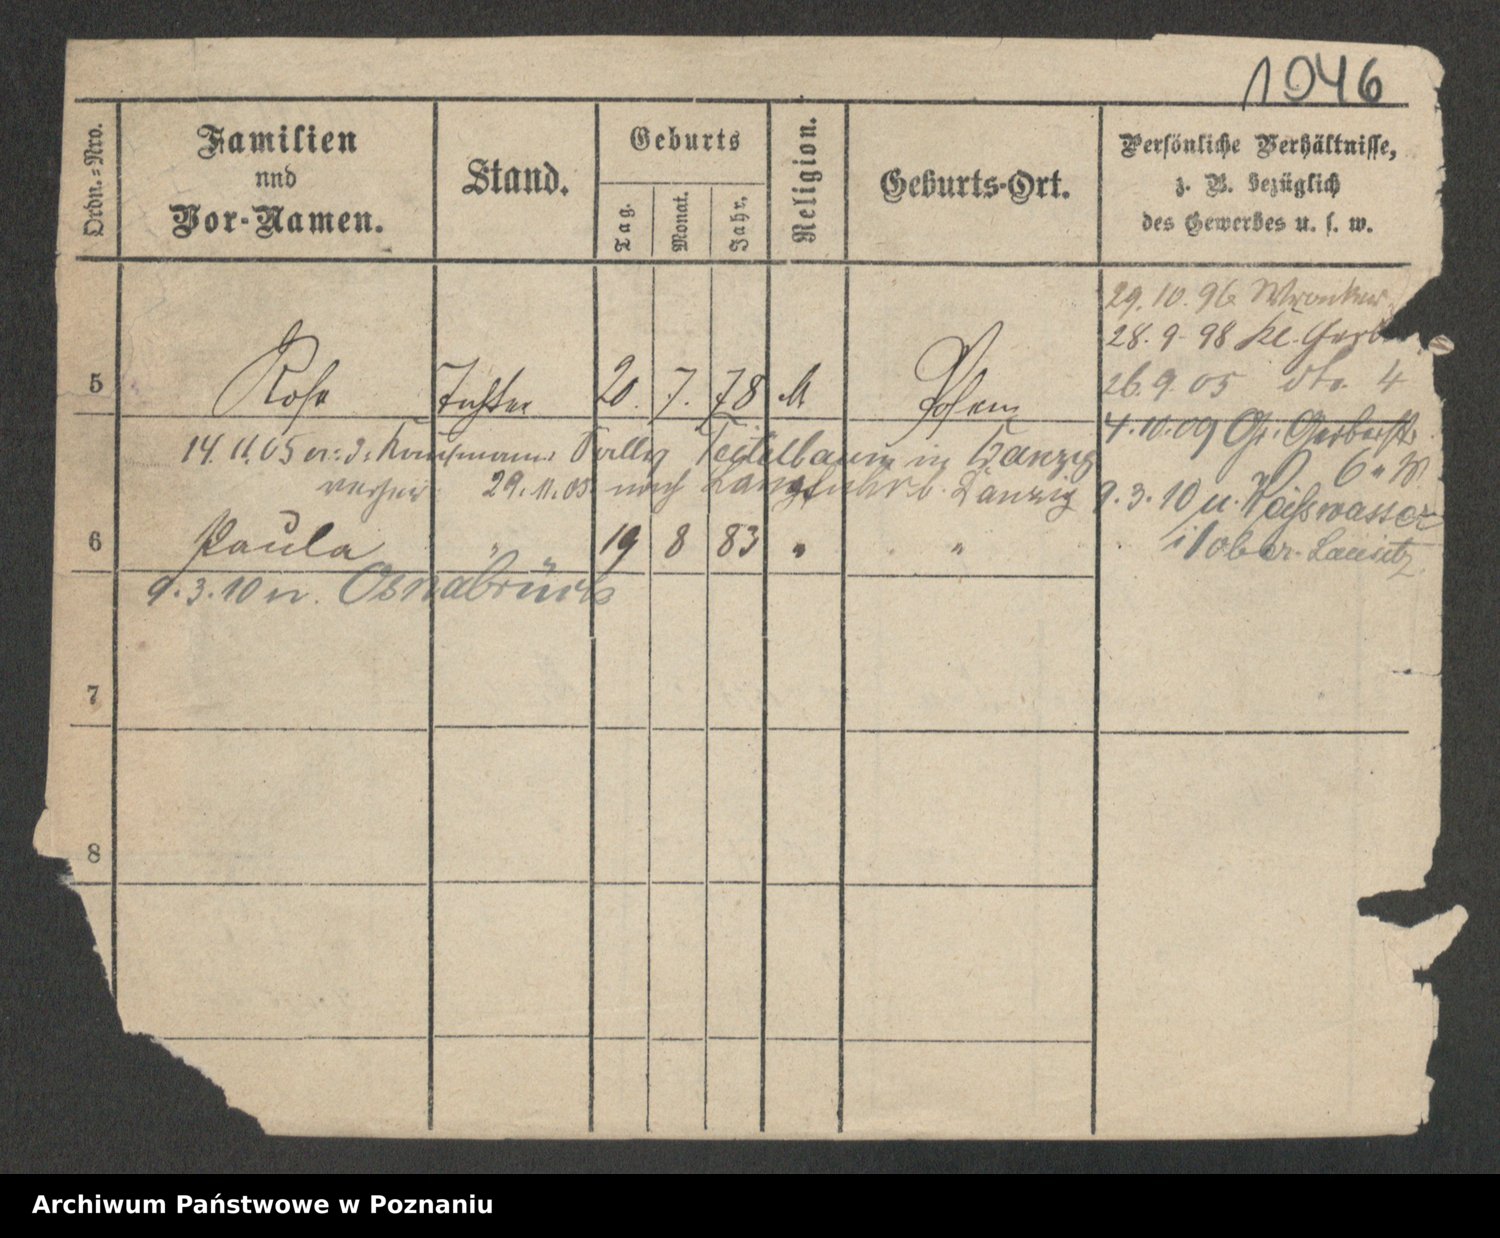 1046
Ordn.=Nro.
Familien
und
Vor-Namen.
Stand.
Geburts
Tag.
Monat.
Jahr.
Religion.
Geburts-Ort.
Persönliche Verhältnisse,
z. B. bezüglich
des Gewerbes u. s. w.
29.10.96 Wronker
28.9.98 Kl. Gerber
5 Rosa Tochter 20. 7. 78 M Posen
26.9.05 dto. 4
4.10.09 Gr. Gerberstr.
14.11.05 Kaufmann Sally Teitelbaum in Danzig
6
29.11.05 nach Langfuhr b. Danzig
9.3.10 n. Weißwasser
6 Paula " 19 8 83 " "
i/ober-Lausitz
9.3.10 n. Osnabrück
7
8
Archiwum Państwowe w Poznaniu